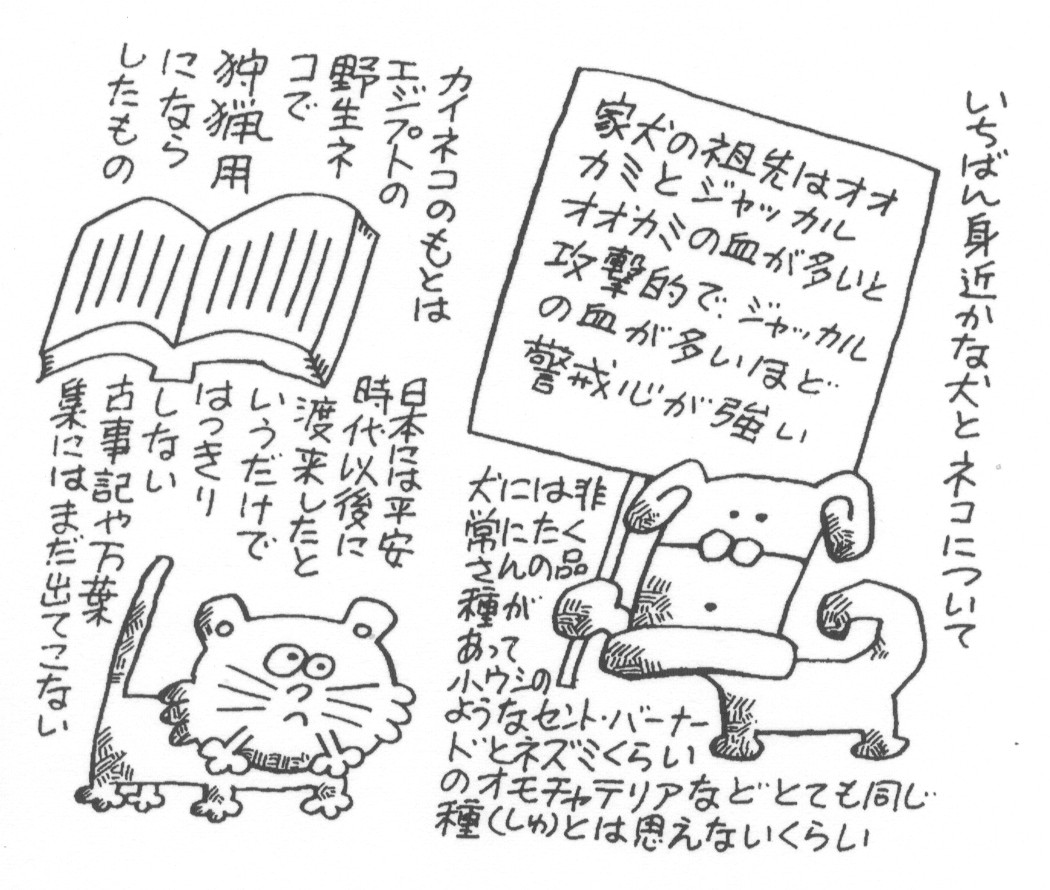 いちばん身近かな犬とネコについて
家犬の祖先はオオ
カミとジャッカル
オオカミの血が多いと
攻撃的で、ジャッカル
の血が多いほど
警戒心が強い
犬には非
常にたく
さんの品
種が
あって
小ウシの
ようなセント・バーナー
ドとネズミくらい
のオモチャテリアなどとても同じ
種(しゅ)とは思えないくらい
カイネコのもとは
エジプトの
野生ネ
コで
狩猟用
になら
したもの
日本には平安
時代以後に
渡来したと
いうだけで
はっきり
しない
古事記や万葉
集にはまだ出てこない